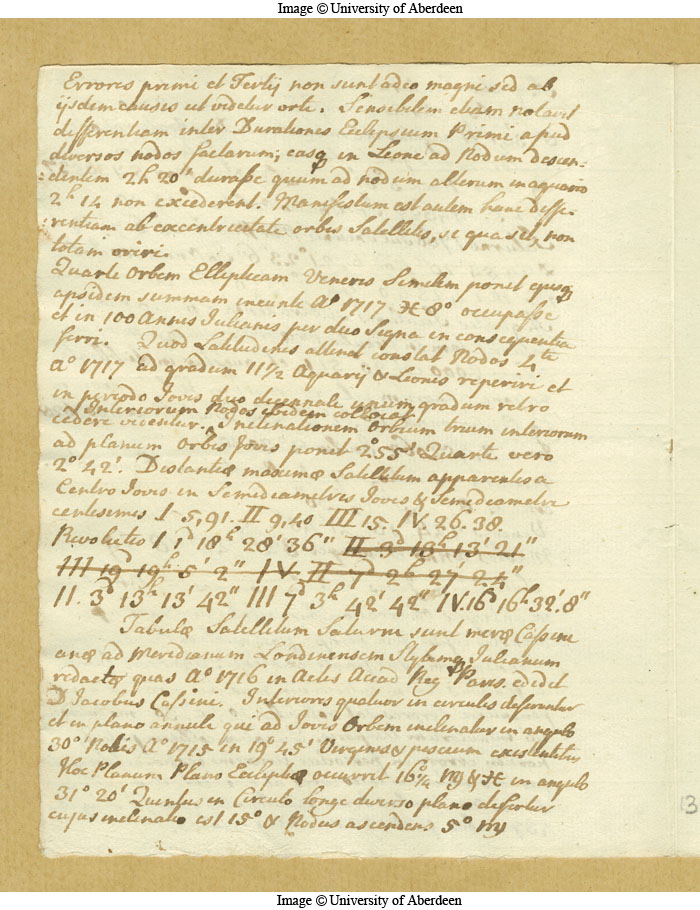 Image © University of Aberdeen
Errores primi et Tertij non sunt adeo magni sed ab
ijsdem causis ut videtur orti. Sensibilem etiam notavit
differentiam inter Durationes Eclipsium Primi apud
diversos nodos factarum; easq in Leone ad Nodum descen-
-dentem 2h 20' durasse quum ad nodum alterum in aquario
2h 14 non excederent. Manifestum est autem hanc diffe-
rentiam ab excentricitate orbis Satellitis, si qua sit, non
totam oriri.
Quarti Orbem Ellipticam Veneris Similem ponit ejusq
apsidem summam ineunte A° 1717 ♓ 8° occupasse
et in 100 Annis Iulianis per duo Signa in consequentia
ferri. Quod Latitudines attinet constat Nodos 4te
A° 1717 ad gradum 11½ Aquarij & Leonis reperiri et
in periodo Jovis duodecennale unum gradum retro
Interiorum Nodos ibidem collocat
cedere videntur. Inclinationem Orbium trium interiorum
ad planum Orbis Jovis ponit 2° 55' Quarti vero
2° 42'. Distantiæ maximæ Satellitum apparentes a
Centro Jovis in Semidiametris Jovis & Semidiametri
centesimis I 5,91. II 9,40 III 15. IV. 26.38.
Revolutio I 1d 18h 28' 36" II 3d 13h 13' 21"
III 19d 19h 5' 2" IV II 7d 2h 27' 24"
II. 3d 13h 13' 42" III 7d 3h 42' 42" IV. 16d 16h 32' 8"
Tabulæ Satellitum Saturni sunt meræ Cassini
anæ ad Meridianum Londinensem Stylumq Julianum
redactæ quas A° 1716 in Actis Acad Reg Paris. edidit
D Jacobus Cassini. Interiores quatuor in circulis deferuntur
et in plano annuli qui ad Jovis Orbem inclinatur in angulo
30° Nodis A° 1715 in 19° 45' Virginis & piscium existentibus
Hoc Planum Plano Eclipticæ occurrit 16°¼ ♍ & ♓ in angulo
31° 20' Quintus in Circulo longe diverso plano defertur
cujus inclinatio est 15° & Nodus ascendens 5° ♍
13
Image © University of Aberdeen